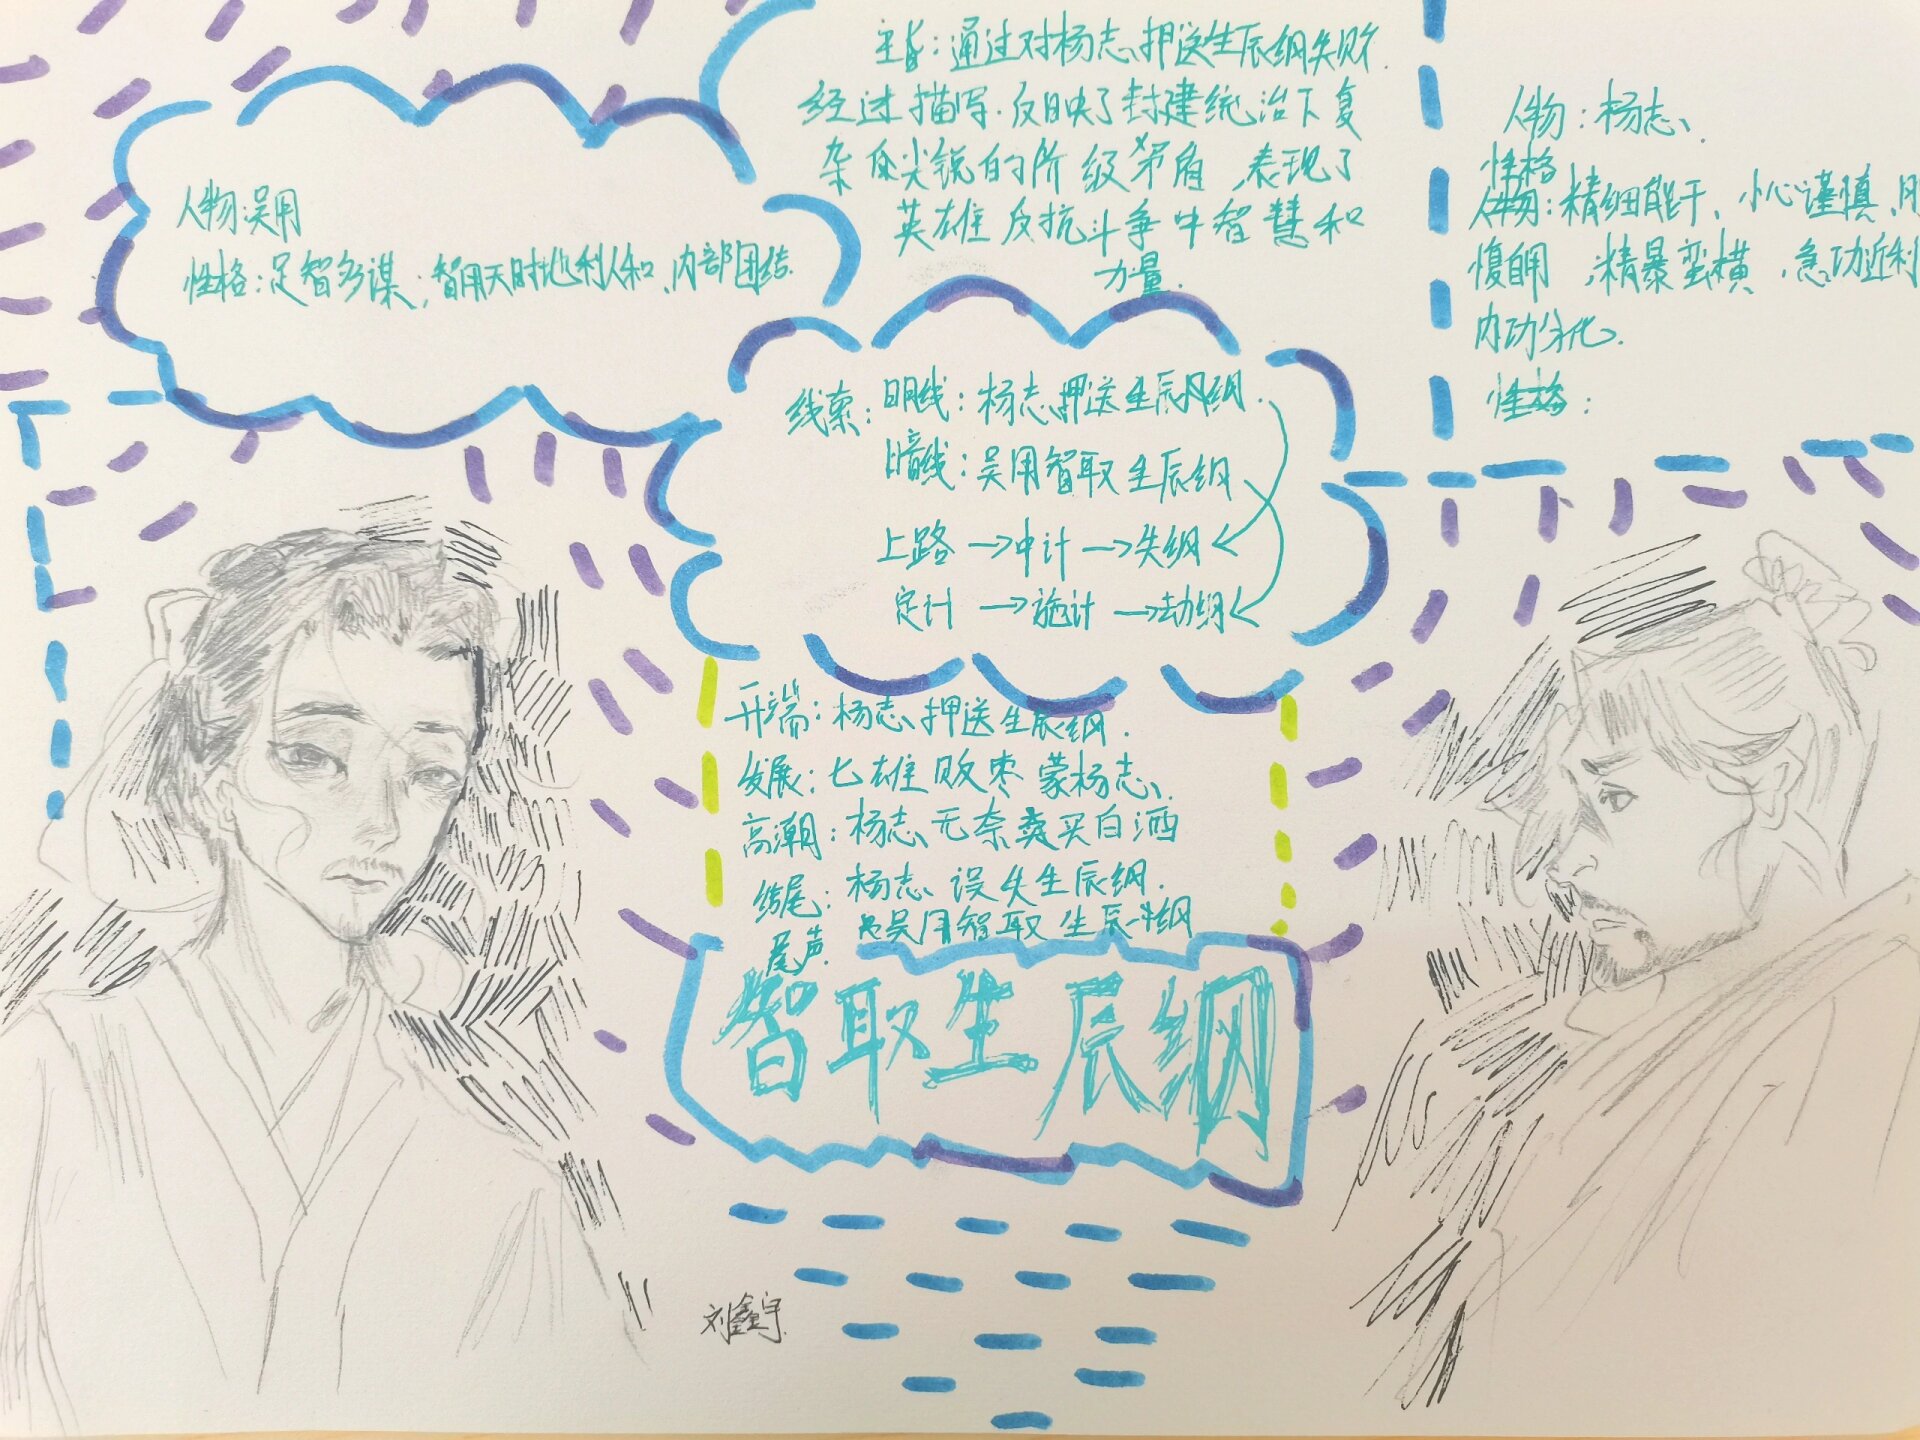 主旨：通过对杨志押送生辰纲失败
经过描写.反映了封建统治下复
杂且尖锐的阶级矛盾,表现了
英雄反抗斗争中智慧和
力量.
人物：杨志、
性格
人物：精细能干、小心谨慎、刚
愎自用,精暴蛮横,急功近利
内功分化.
性格：
人物:吴用
性格：足智多谋；智用天时地利人和、内部团结.
线索：明线：杨志押送生辰纲.
暗线：吴用智取生辰纲
上路→中计→失纲
定计→施计→劫纲
开端：杨志押送生辰纲.
发展：七雄贩枣蒙杨志、
高潮：杨志无奈卖买白酒
结尾：杨志误失生辰纲.
尾声 吴用智取生辰纲
智取生辰纲
刘鑫宇